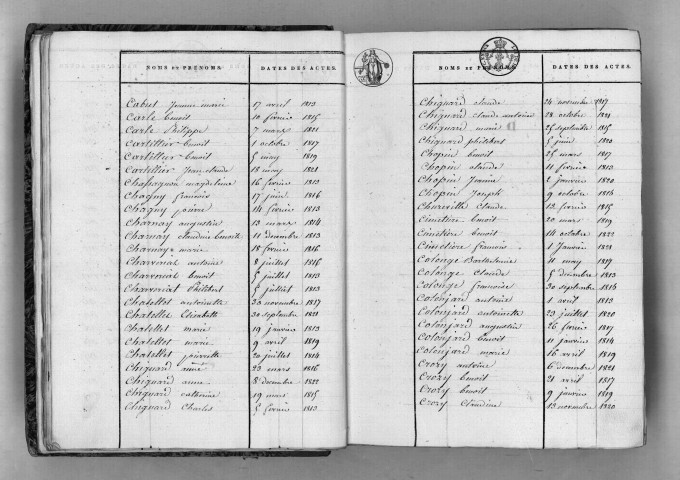 NOMS ET PRÉNOMS. DATES DES ACTES.
Cabut Jeanne marie 17 avril 1813
Carle benoit 10 fevrier 1815
Carle Philippe 7 mars 1821
Cartillier benoit 1 octobre 1817
Cartillier benoit 5 may 1819
Cartillier Jean claude 18 may 1821
Chapagnon magdeleine 16 fevrier 1813
Chagny francois 17 juin 1816
Chagny pierre 14 fevrier 1813
Charnay augustin 13 mars 1814
Charnay claudine benoite 11 decembre 1813
Charnay marie 18 fevrier 1816
Charreniat antoine 8 juillet 1816
Charreniat benoit 5 juillet 1813
Charreniat Philibert 5 juillet 1813
Chatellet antoinette 23 novembre 1817
Chatellet Elizabeth 30 septembre 1821
Chatellet marie 19 janvier 1813
Chatellet marie 9 avril 1819
Chatellet pierrette 20 juillet 1814
Chiquard anne 23 mars 1816
Chiquard anne 8 decembre 1822
Chiquard catherine 19 mars 1815
Chiquard Charles 5 fevrier 1813
NOMS ET PRÉNOMS. DATES DES ACTES.
Chiquard claude 24 novembre 1817
Chiquard claude antoine 28 octobre 1821
Chiquard marie 25 septembre 1815
Chiquard philibert 5 juin 1820
Chopin benoit 25 mars 1817
Chopin claude 11 fevrier 1813
Chopin Jeanne 2 janvier 1820
Chopin Joseph 9 octobre 1814
claude 12 fevrier 1815
Cimetiere benoit 20 mars 1819
Cimetiere benoit 14 octobre 1822
Cimetiere francois 1 Janvier 1821
Colonge Barthelemie 11 may 1817
Colonge Claude 5 decembre 1813
Colonge francoise 30 septembre 1816
Colonjard antoine 1 avril 1813
Colonjard antoinette 23 juillet 1820
Colonjard augustin 26 fevrier 1817
Colonjard benoit 11 janvier 1814
Colonjard marie 16 avril 1819
Crozy antoine 6 decembre 1821
Crozy benoit 21 avril 1817
Crozy benoit 9 janvier 1819
Crozy Claudine 13 novembre 1820